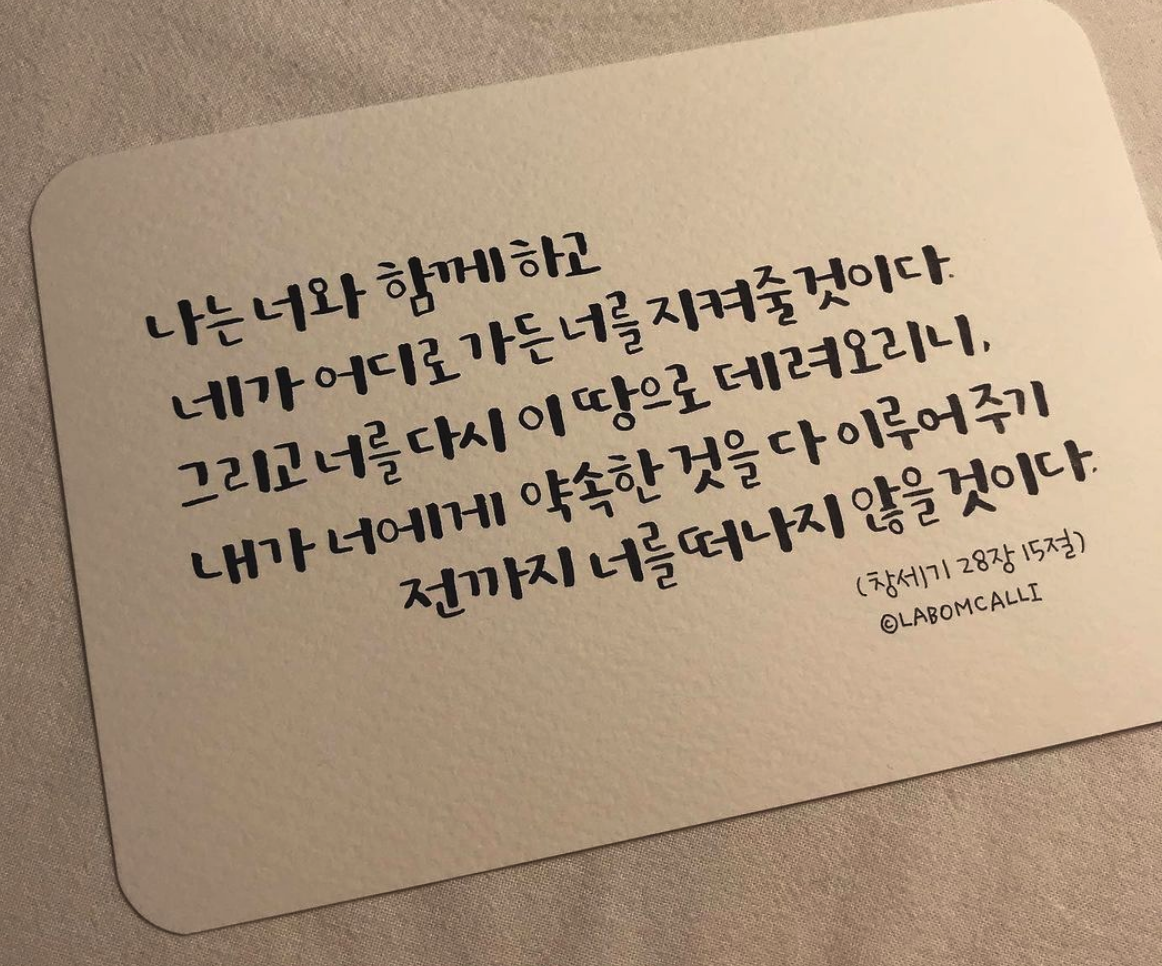 나는 너와 함께 하고
네가 어디로 가든 너를 지켜줄 것이다.
그리고 너를 다시 이 땅으로 데려오리니,
내가 너에게 약속한 것을 다 이루어 주기
전까지 너를 떠나지 않을 것이다.
(창세기 28장 15절)
©LABOMCALLI